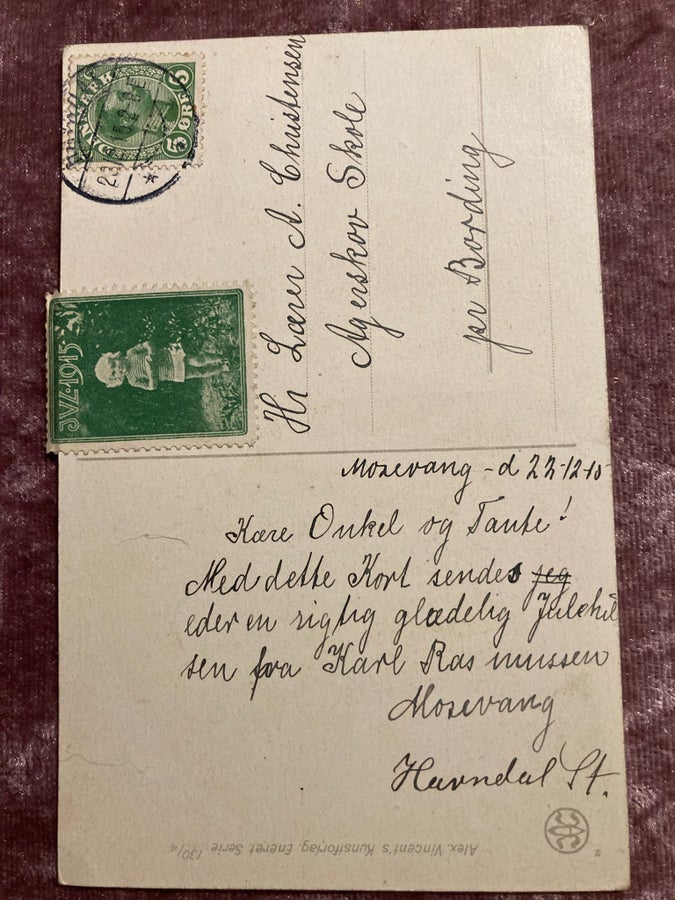 DANMARK
5 ØRE 5
JUL 1915
Hr Lærer A. Christensen
Agerskov Skole
pr Bording
Mosevang - d 22-12-15
Kære Onkel og Tante!
Med dette Kort sendes jeg
eder en rigtig glædelig Julehil
sen fra Karl Rasmussen
Mosevang
Havndal St.
Alex. Vincent's Kunstforlag. Eneret Serie 130/4